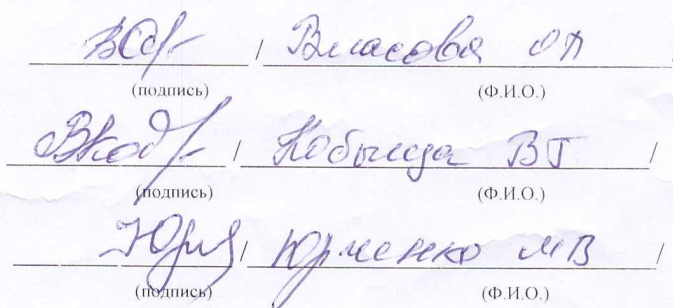 / Власова ОП
(подпись) (Ф.И.О.)
/ Кобылда ВГ /
(подпись) (Ф.И.О.)
/ Юрченко МВ /
(подпись) (Ф.И.О.)